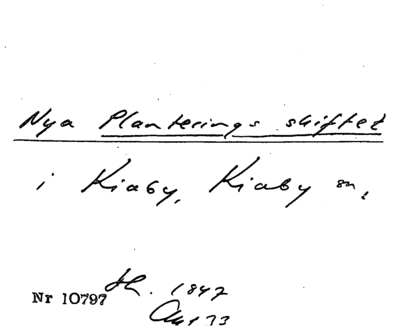 Nya Planterings skiftet
i Kiaby, Kiaby sn,
Sk. 1847
Nr 10797